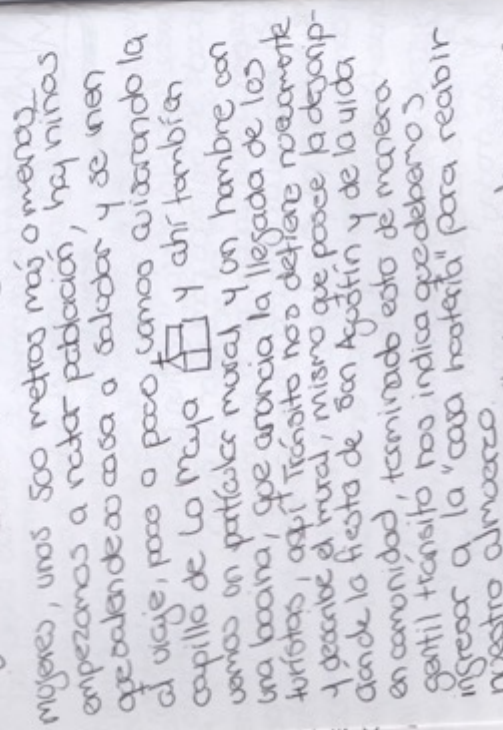 mujeres, unos 500 metros más o menos
empezamos a notar población, hay niñas
que salen de su casa a saludar y se unen
al viaje, poco a poco vamos avisorando la
capilla de La Moya y ahí también
vemos un particular mural y un hombre con
una bocina, que anuncia la llegada de los
turistas, aquí Tránsito nos detiene nuevamente
y describe el mural, mismo que posee la descrip-
donde la fiesta de San Agustín y de la vida
en comunidad, terminado esto de manera
gentil tránsito nos indica que debemos
ingresar a la "casa hostería" para recibir
nuestro almuerzo